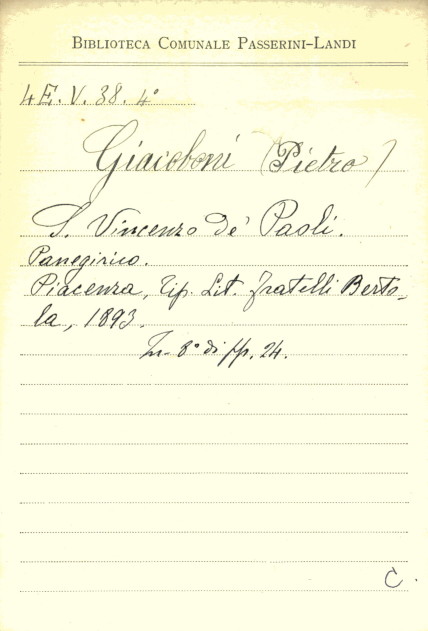 BIBLIOTECA COMUNALE PASSERINI-LANDI
4E.V.38.4°
Giacoboni (Pietro)
S. Vincenzo de' Paoli.
Panegirico.
Piacenza, Tip. Lit. Fratelli Berto-
la, 1893.
In-8° di pp. 24.
C.